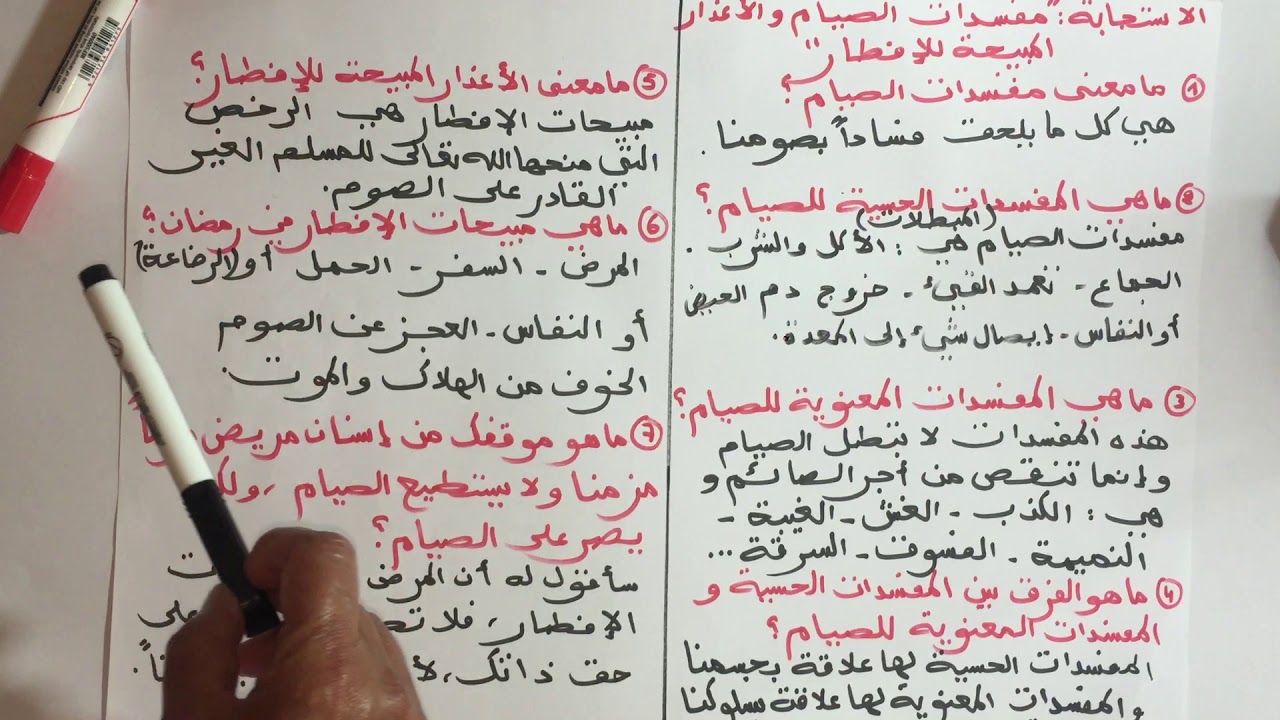 الاستجابة: "مفسدات الصيام والأعذار
المبيحة للإفطار"
① ما معنى مفسدات الصيام؟
هي كل ما يلحق فساداً بصومنا.
② ما هي المفسدات الحسية للصيام؟
(المبطلات)
مفسدات الصيام هي: الأكل والشرب.
الجماع - تعمد القيء - خروج دم الحيض
أو النفاس - إيصال شيء إلى المعدة.
③ ما هي المفسدات المعنوية للصيام؟
هذه المفسدات لا تبطل الصيام
وإنما تنقص من أجر الصائم و
هي: الكذب - الغش - الغيبة -
النميمة - الفسوق - السرقة ...
④ ما هو الفرق بين المفسدات الحسية و
المفسدات المعنوية للصيام؟
المفسدات الحسية لها علاقة بجسمنا
والمفسدات المعنوية لها علاقة بسلوكنا
⑤ ما معنى الأعذار المبيحة للإفطار؟
مبيحات الإفطار هي الرخص
التي منحها الله تعالى للمسلم الغير
القادر على الصوم.
⑥ ما هي مبيحات الإفطار في رمضان؟
المرض - السفر - الحمل أو (الرضاعة)
أو النفاس - العجز عن الصوم
الخوف من الهلاك والموت.
⑦ ما هو موقفك من إنسان مريض
مزمنا ولا يستطيع الصيام، ولك
يصر على الصيام؟
سأقول له أن المرض
الإفطار، فلا على
حق ذاتك،